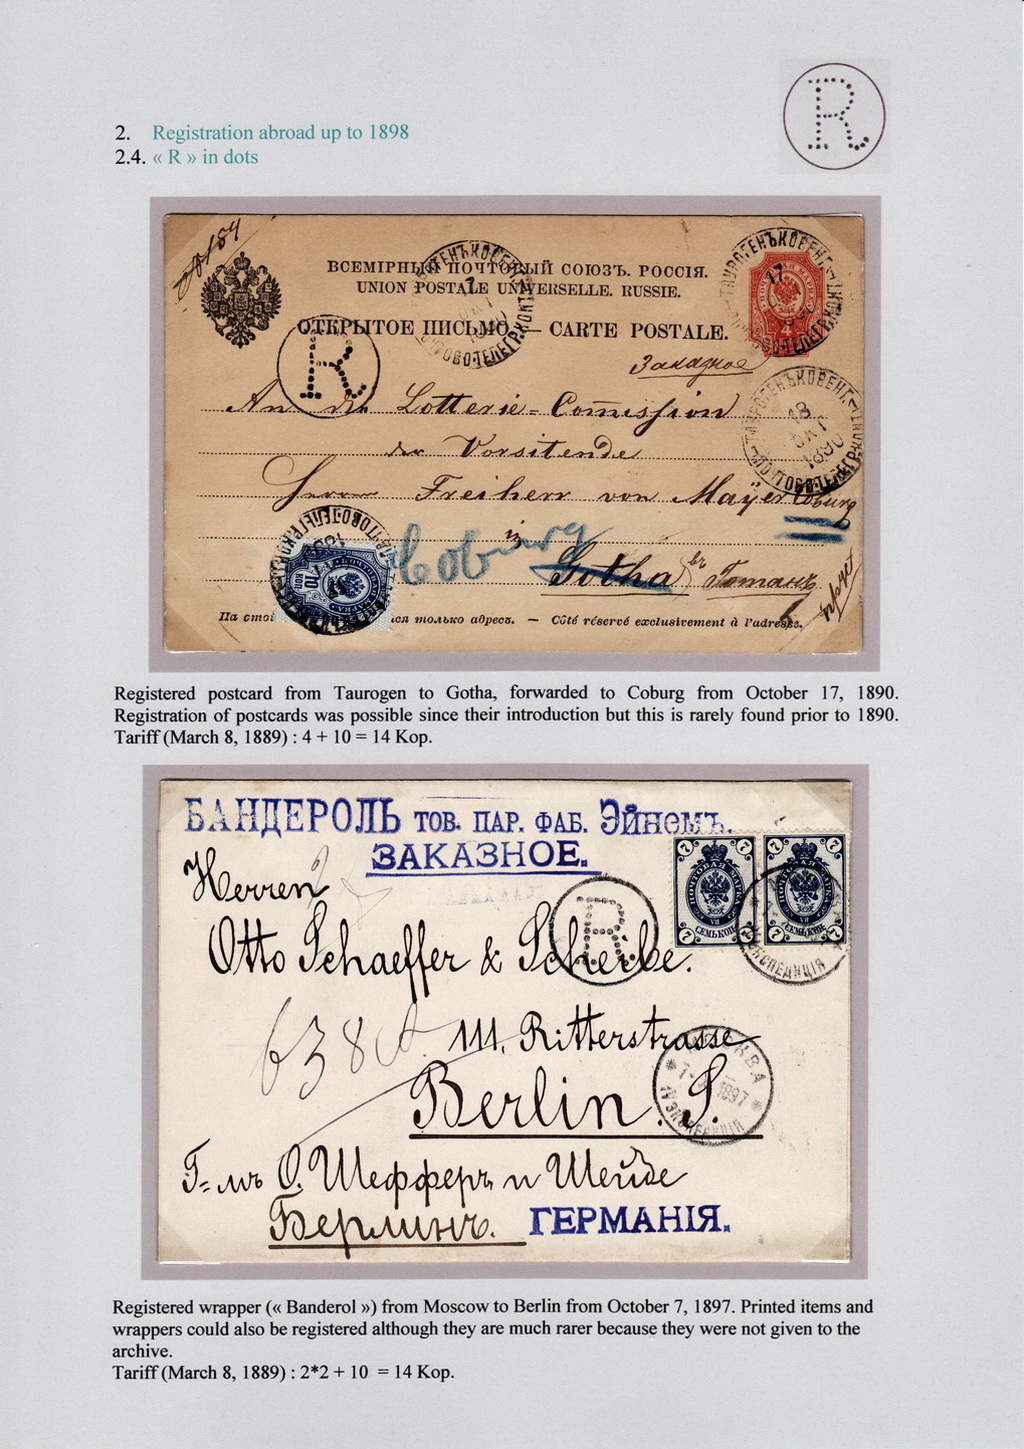 2. Registration abroad up to 1898
2.4. « R » in dots
R
ВСЕМІРНЫЙ ПОЧТОВЫЙ СОЮЗЪ. РОССІЯ.
UNION POSTALE UNIVERSELLE. RUSSIE.
ОТКРЫТОЕ ПИСЬМО. — CARTE POSTALE.
4
R
Заказное
An die Lotterie=Com̅ission
der Vorsitende
Herrn Freiherr von Mayer Coburg
in
Coburg
Gotha въ Готанъ
18 ОКТ 1890
10 КОП
На ся только адресъ. — Côté réservé exclusivement à l'adresse.
Registered postcard from Taurogen to Gotha, forwarded to Coburg from October 17, 1890.
Registration of postcards was possible since their introduction but this is rarely found prior to 1890.
Tariff (March 8, 1889) : 4 + 10 = 14 Kop.
БАНДЕРОЛЬ ТОВ. ПАР. ФАБ. Эйнемъ.
ЗАКАЗНОЕ.
7 7 7 7
ПОЧТОВАЯ МАРКА ПОЧТОВАЯ МАРКА
СЕМЬ КОП СЕМЬ КОП
Herren
R
Otto Schaeffer & Scheibe.
ЭКСПЕДИЦІЯ
638
111, Ritterstrasse
Berlin. S.
МОСКВА 1897 ЭКСПЕДИЦІЯ
Г=мъ О. Шефферъ и Шейбе
Берлинъ. ГЕРМАНІЯ.
Registered wrapper (« Banderol ») from Moscow to Berlin from October 7, 1897. Printed items and
wrappers could also be registered although they are much rarer because they were not given to the
archive.
Tariff (March 8, 1889) : 2*2 + 10 = 14 Kop.